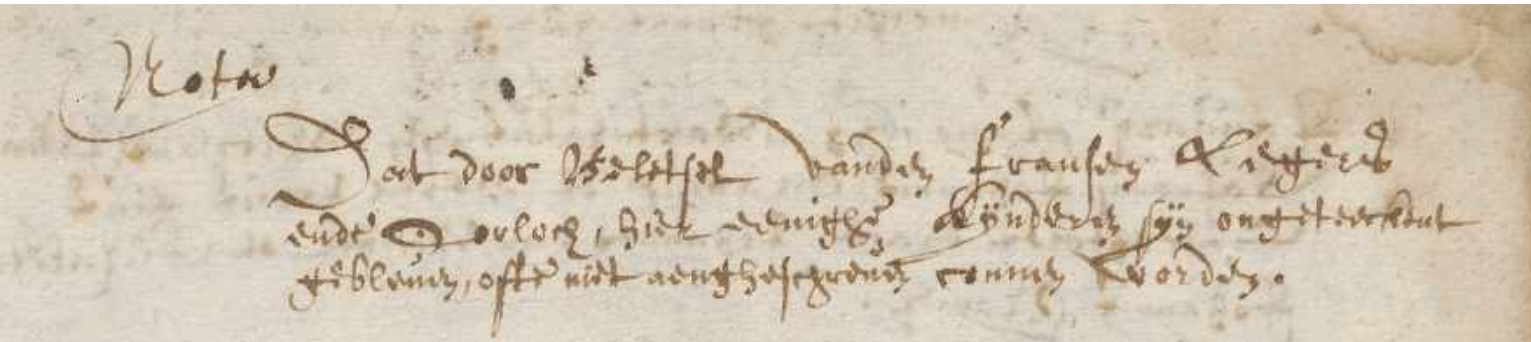 Nota
Dat door Beletsel vanden Fransen Legers
ende Oorloch, hier eenighe kÿnderen sÿn ongeteeckent
gebleven, ofte niet aenghescreven connen worden.